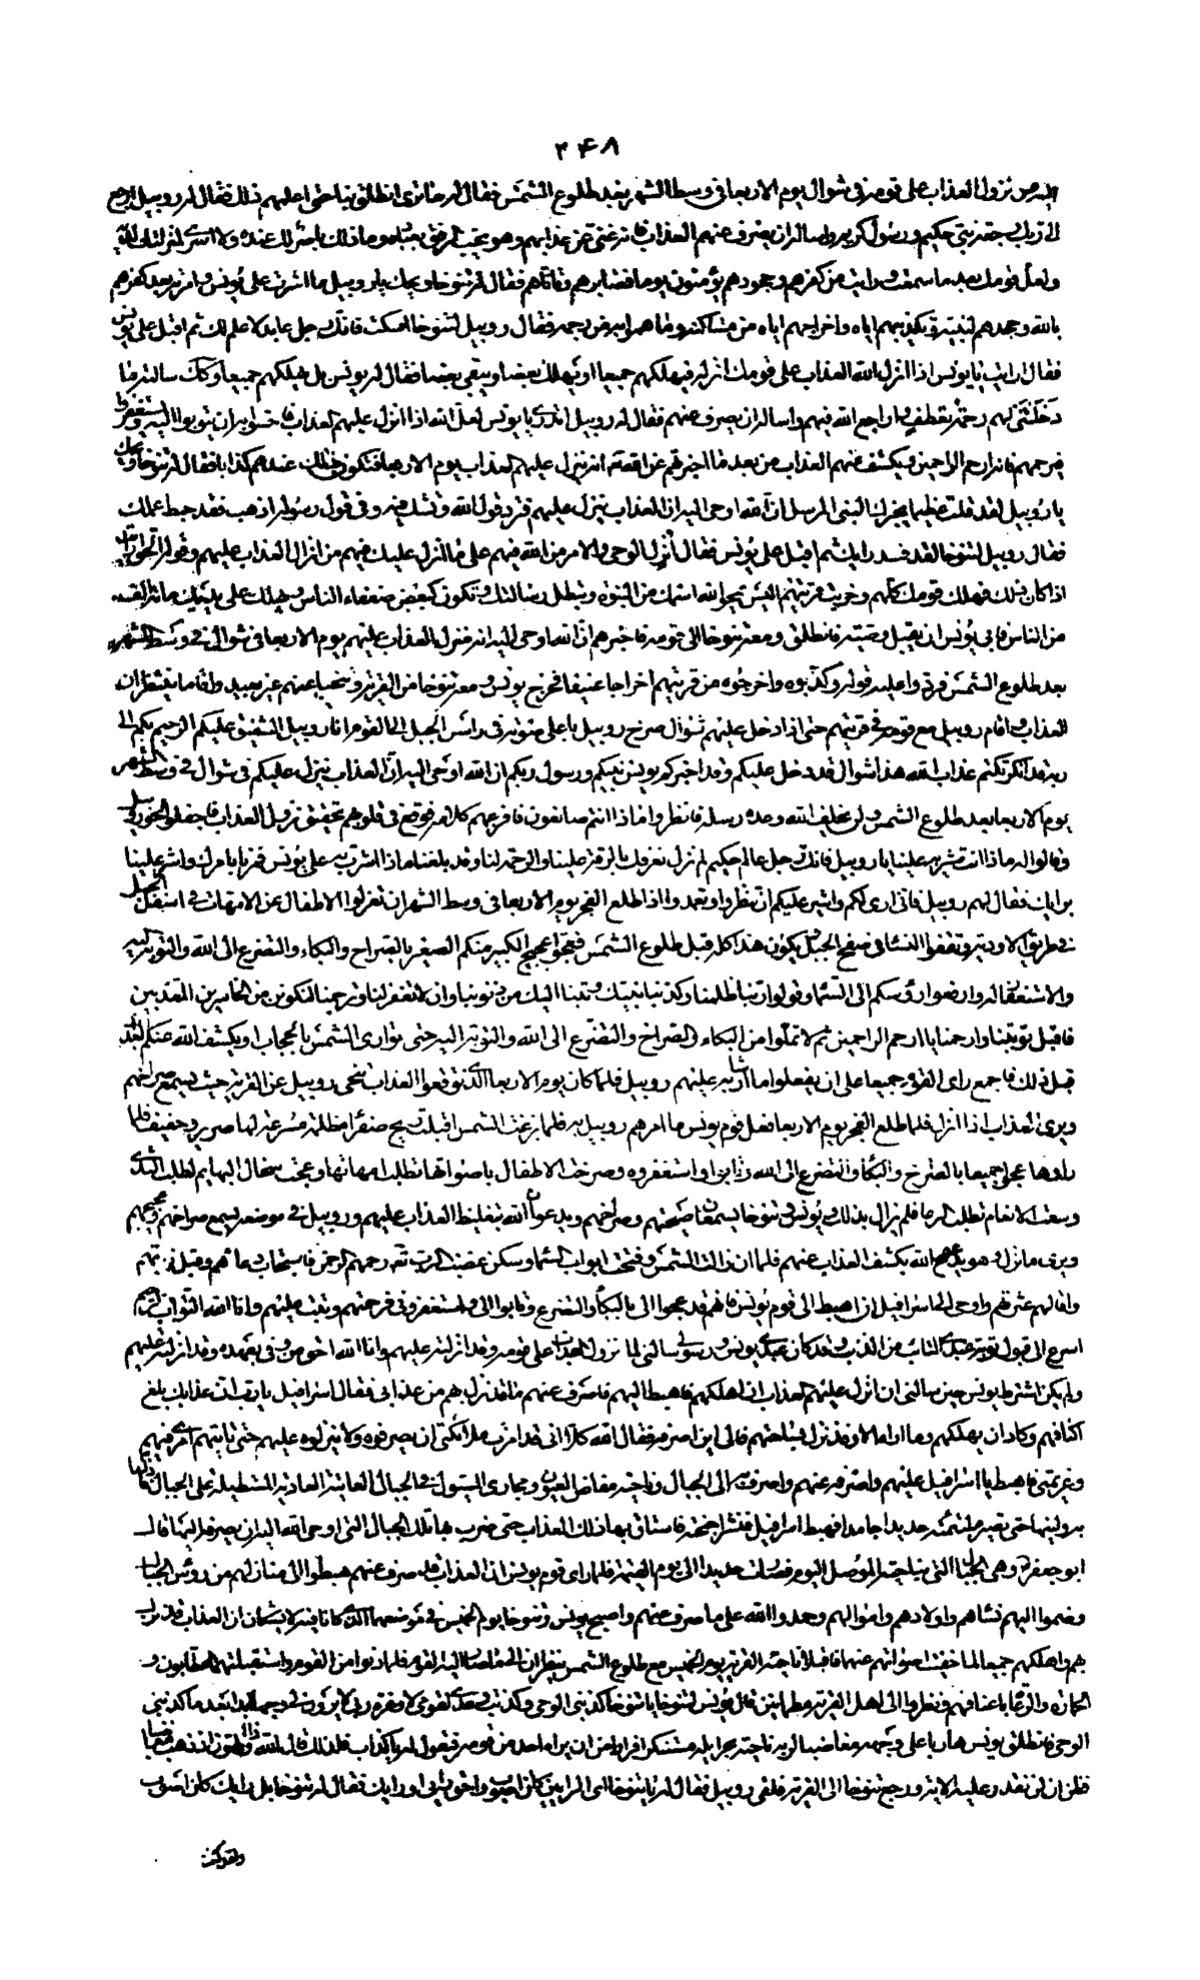 ٣۴٨
نزول العذاب على قومه في شوال يوم الاربعا في وسط الشهر بعد طلوع الشمس فقال له تنوخا فما ترى انطلق بنا حتى اعلمهم ذلك فقال له روبيل ارجع
الى ربك رجعة نبي حكيم ورسول كريم واساله ان يصرف عنهم العذاب فانه غني عن عذابهم وهو يحب الرفق بعباده وما ذلك باضر لك عنده ولا اسرى لمنزلتك لديه
ولعل قومك بعد ما سمعت ورايت من كفرهم وجحودهم يؤمنون يوما فصابرهم وتاناهم فقال له تنوخا ويحك يا روبيل ما اشرت على يونس وامرته بعد كفرهم
بالله وجحدهم لنبيه وتكذيبهم اياه واخراجهم اياه من مساكنه وما هموا به من رجمه فقال روبيل لتنوخا اسكت فانك رجل عابد لا علم لك ثم اقبل على يونس
فقال ارايت يا يونس اذا انزل الله العذاب على قومك انزله فيهلكهم جميعا او يهلك بعضا ويبقى بعضا فقال له يونس بل يهلكهم جميعا وكذلك سالته ما
دخلتني لهم رحمة تعطف فاراجع الله فيهم واساله ان يصرف عنهم فقال له روبيل اتدري يا يونس لعل الله اذا انزل عليهم العذاب فاحسوا به ان يتوبوا اليه ويستغفروا
فيرحمهم فانه ارحم الراحمين ويكشف عنهم العذاب من بعد ما اخبرتهم عن الله انه ينزل عليهم العذاب يوم الاربعا فتكون بذلك عندهم كذابا فقال له تنوخا ويحك
يا روبيل لقد قلت عظيما يخبرك النبي المرسل ان الله اوحى اليه ان العذاب ينزل عليهم فترد قول الله وتشك فيه وفي قول رسوله اذهب فقد حبط عملك
فقال روبيل لتنوخا لقد فسد رايك ثم اقبل على يونس فقال انزل الوحي والامر من الله فيهم على ما انزل عليك فيهم من انزال العذاب عليهم وقوله الحق ارايت
اذا كان ذلك فهلك قومك كلهم وخربت قريتهم اليس يمحو الله اسمك من النبوة وتبطل رسالتك وتكون كبعض ضعفاء الناس ويهلك على يديك مائة الف
من الناس فابى يونس ان يقبل وصيته فانطلق ومعه تنوخا الى قومه فاخبرهم ان الله اوحى اليه انه منزل العذاب عليهم يوم الاربعا في شوال في وسط الشهر
بعد طلوع الشمس فردوا عليه قوله وكذبوه واخرجوه من قريتهم اخراجا عنيفا فخرج يونس ومعه تنوخا من القرية وتنحيا عنهم غير بعيد واقاما ينتظران
العذاب واقام روبيل مع قومه في قريتهم حتى اذا دخل عليهم شوال صرخ روبيل باعلى صوته في راس الجبل الى القوم انا روبيل الشفيق عليكم الرحيم بكم الى
ربه قد انكرتم عذاب الله هذا شوال قد دخل عليكم وقد اخبركم يونس نبيكم ورسول ربكم ان الله اوحى اليه ان العذاب ينزل عليكم في شوال في وسط الشهر
يوم الاربعا بعد طلوع الشمس ولن يخلف الله وعده رسله فانظروا ماذا انتم صانعون فافزعهم كلامه فوقع في قلوبهم تحقيق نزول العذاب فاجفلوا نحو روبيل
وقالوا له ماذا انت مشير به علينا يا روبيل فانك رجل عالم حكيم لم نزل نعرفك بالرقة علينا والرحمة لنا وقد بلغنا ما ذا اشرت به على يونس فمرنا بامرك واشر علينا
برايك فقال لهم روبيل فاني ارى لكم واشير عليكم ان تنظروا وتعمدوا اذا طلع الفجر يوم الاربعا في وسط الشهر ان تعزلوا الاطفال عن الامهات في اسفل الجبل
في طريق الاودية وتقفوا النسا في سفح الجبل ويكون هذا كله قبل طلوع الشمس فعجوا عجيج الكبير منكم والصغير بالصراخ والبكاء والتضرع الى الله والتوبة اليه
والاستغفار له وارفعوا رؤسكم الى السما وقولوا ربنا ظلمنا وكذبنا نبيك وتبنا اليك من ذنوبنا وان لا تغفر لنا وترحمنا لنكونن من الخاسرين المعذبين
فاقبل توبتنا وارحمنا يا ارحم الراحمين ثم لا تملوا من البكاء والصراخ والتضرع الى الله والتوبة اليه حتى توارى الشمس بالحجاب او يكشف الله عنكم العذاب
قبل ذلك فاجمع راى القوم جميعا على ان يفعلوا ما اشار به عليهم روبيل فلما كان يوم الاربعا الذي توقعوا العذاب تنحى روبيل عن القرية حيث يسمع صراخهم
ويرى العذاب اذا نزل فلما طلع الفجر يوم الاربعا فعل قوم يونس ما امرهم روبيل به فلما بزغت الشمس اقبلت ريح صفرا مظلمة مسرعة لها صرير وحفيف فلما
راوها عجوا جميعا بالصراخ والبكا والتضرع الى الله وتابوا واستغفروه وصرخت الاطفال باصواتها تطلب امهاتها وعجت سخال البهايم تطلب الثدي
وسعت الانعام تطلب الرعا فلم يزالوا بذلك ويونس وتنوخا يسمعان صيحتهم وصراخهم ويدعوان الله بتغليظ العذاب عليهم وروبيل في موضعه يسمع صراخهم وعجيجهم
ويرى ما نزل وهو يدعو الله بكشف العذاب عنهم فلما ان زالت الشمس وفتحت ابواب السما وسكن غضب الرب تعالى رحمهم الرحمن فاستجاب دعاهم وقبل توبتهم
واقالهم عثرتهم واوحى الى اسرافيل ان اهبط الى قوم يونس فانهم قد عجوا الى بالبكا والتضرع وتابوا الى واستغفروني فرحمتهم وتبت عليهم وانا الله التواب الرحيم
اسرع الى قبول توبة عبدي التائب من الذنب وقد كان عبدي يونس ورسولي سالني نزول العذاب على قومه وقد انزلته عليهم وانا الله احق من وفى بعهده وقد انزلته عليهم
ولم يكن اشترط يونس حين سالني ان انزل عليهم العذاب ان اهلكهم فاهبط اليهم فاصرف عنهم ما قد نزل بهم من عذابي فقال اسرافيل يا رب ان عذابك بلغ
اكتافهم وكاد ان يهلكهم وما اراه الا وقد نزل بساحتهم فالى اين اصرفه فقال الله كلا اني قد امرت ملائكتي ان يصرفوه ولا ينزلوه عليهم حتى ياتيهم امري فيهم
وعزيمتي فاهبط يا اسرافيل عليهم واصرفه عنهم واصرف به الى الجبال وناحية مفاض العيون ومجاري السيول في الجبال العاتية العادية المستطيلة على الجبال فاذلها
به ولينها حتى تصير ملتئمة حديدا جامدا فهبط اسرافيل فنشر اجنحته فاستاق بها ذلك العذاب حتى ضرب بها تلك الجبال التي اوحى الله اليه ان يصرفه اليها قال
ابو جعفر وهي الجبال التي بناحية الموصل اليوم فصارت حديدا الى يوم القيمة فلما راى قوم يونس ان العذاب قد صرف عنهم هبطوا الى منازلهم من رؤس الجبال
وضموا اليهم نساهم واولادهم واموالهم وحمدوا الله على ما صرف عنهم واصبح يونس وتنوخا يوم الخميس في موضعهما الذي كانا فيه لا يشكان ان العذاب قد نزل
بهم واهلكهم جميعا لما خفيت اصواتهم عنهما فاقبلا ناحية القرية يوم الخميس مع طلوع الشمس ينظران الى ما صار اليه القوم فلما دنوا من القوم واستقبلتهم الحطابون و
الحمارة والرعاة باعناقهم ونظروا الى اهل القرية مطمانين قال يونس لتنوخا يا تنوخا كذبني الوحي وكذبت وعدي لقومي لا وعزة ربي لا يرون لي وجها ابدا بعد ما كذبني
الوحي فانطلق يونس هاربا على وجهه مغاضبا لربه ناحية بحر ايلة مستنكرا فرارا من ان يراه احد من قومه فيقول له يا كذاب فلذلك قال الله وذا النون اذ ذهب مغاضبا
فظن ان لن نقدر عليه الاية ورجع تنوخا الى القرية فلقى روبيل فقال له يا تنوخا اى الرايين كان اصوب واحق رايي او رايك فقال له تنوخا بل رايك كان اصوب
ولقد كنت